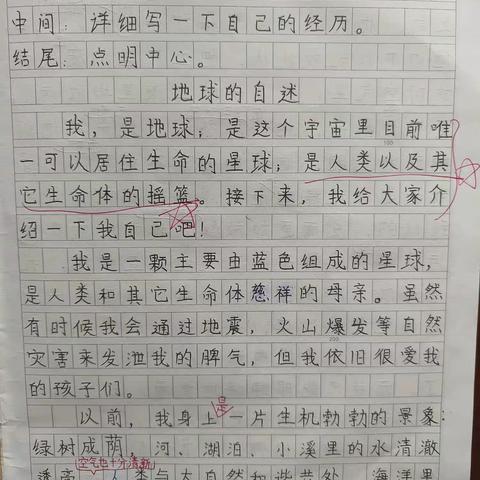 中间：详细写一下自己的经历。
结尾：点明中心。
地球的自述
我，是地球；是这个宇宙里目前唯
一可以居住生命的星球；是人类以及其
它生命体的摇篮。接下来，我给大家介
绍一下我自己吧！
我是一颗主要由蓝色组成的星球，
是人类和其它生命体慈祥的母亲。虽然
有时候我会通过地震，火山爆发等自然
灾害来发泄我的脾气，但我依旧很爱我
的孩子们。
是
以前，我身上一片生机勃勃的景象：
绿树成荫，河、湖泊、小溪里的水清澈
空气也十分清新
透亮，人类与大自然和谐共处，海洋里